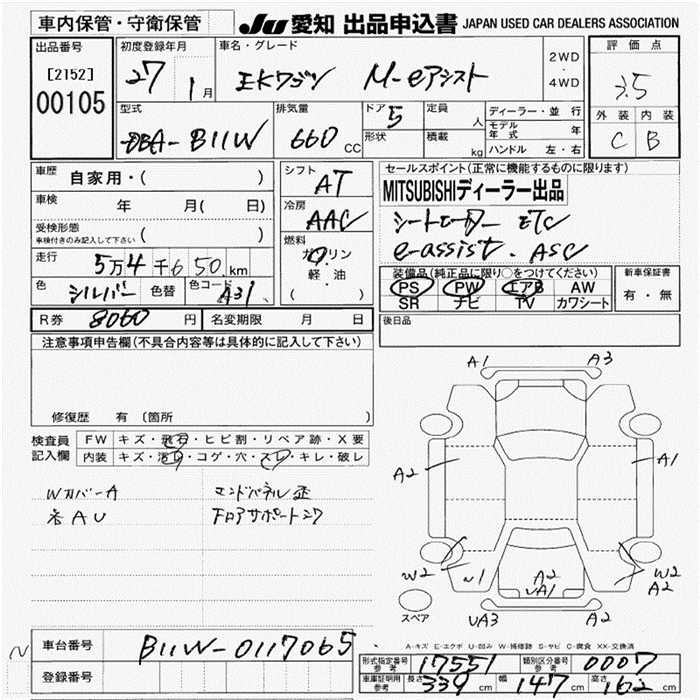 車内保管・守衛保管
JU 愛知 出品申込書 JAPAN USED CAR DEALERS ASSOCIATION
出品番号
[2152]
00105
初度登録年月
27 1月
車名・グレード
EKワゴン M-eアシスト
2WD
・
4WD
評価点
3.5
外装 内装
C B
型式
DBA-B11W
排気量
660 CC
ドア 5
形状
定員 人
積載 kg
ディーラー・並行
モデル年式 年
ハンドル 左・右
車歴
自家用・( )
車検 年 月( 日)
受検形態
車検付きのみ記入して下さい ( )
走行
5万4千650km
色 シルバー 色替 色コード A31
シフト
AT
冷房
AAC
燃料
ガソリン
軽・油
( )
セールスポイント(正常に機能するものに限ります)
MITSUBISHIディーラー出品
シートヒーター ETC
e-assist. ASC
装備品(純正品に限り○をつけてください)
PS PW エアB AW
SR ナビ TV カワシート
新車保証書
有・無
R券 8060円 名変期限 月 日
後日品
注意事項申告欄(不具合内容等は具体的に記入して下さい)
修復歴 有 〔箇所 〕
検査員
記入欄
FW キズ・飛石・ヒビ割・リペア跡・X要
内装 キズ・汚レ・コゲ・穴・スレ・キレ・破レ
WカバーA エンドパネル歪
AU
A1 A3
A2 A1
W2 W1 A2 UA1 W2 A2
スペア
UA3 A2
A-キズ E-エクボ U-凹み W-補修跡 S-サビ C-腐食 XX-交換済
N
車台番号 B11W-0117065
登録番号
形式指定番号 参考 17551 類別区分番号 参考 0007
車庫証明用 参考 長さ 339 cm 幅 147 cm 高さ 162 cm